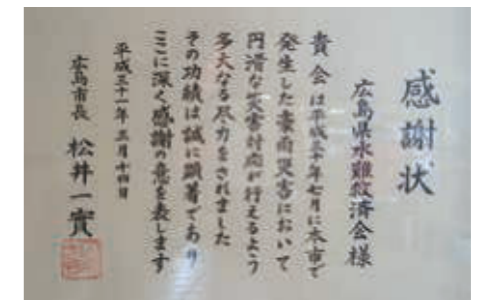 感謝状
広島県水難救済会様
貴会は平成三十年七月に本市で
発生した豪雨災害において
円滑な災害対応が行えるよう
多大なる尽力をされました
その功績は誠に顕著であり
ここに深く感謝の意を表します
平成三十一年三月十四日
広島市長 松井一實